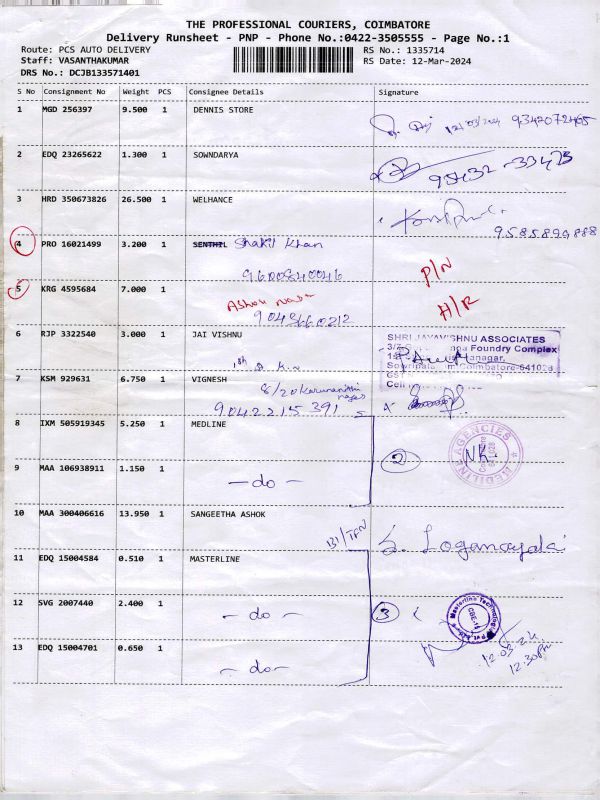 THE PROFESSIONAL COURIERS, COIMBATORE
Delivery Runsheet - PNP - Phone No.:0422-3505555 - Page No.:1
Route: PCS AUTO DELIVERY RS No.: 1335714
Staff: VASANTHAKUMAR RS Date: 12-Mar-2024
DRS No.: DCJB133571401
S No Consignment No Weight PCS Consignee Details Signature
1 MGD 256397 9.500 1 DENNIS STORE
12/03/2024 9342072465
2 EDQ 23265622 1.300 1 SOWNDARYA
98432-33423
3 HRD 350673826 26.500 1 WELHANCE
9585899888
4 PRO 16021499 3.200 1 SENTHIL Shakil Khan
9600840046 P/N
5 KRG 4595684 7.000 1
Ashok H/R
9043660212
6 RJP 3322540 3.000 1 JAI VISHNU
SHRI JAYAVISHNU ASSOCIATES
Foundry Complex
Coimbatore-641028
7 KSM 929631 6.750 1 VIGNESH
8/20 Karunanithi nagar
9042215391
8 IXM 505919345 5.250 1 MEDLINE
MEDLINE AGENCIES
2 NK
9 MAA 106938911 1.150 1
- do -
10 MAA 300406616 13.950 1 SANGEETHA ASHOK
S. Loganayaki
11 EDQ 15004584 0.510 1 MASTERLINE
12 SVG 2007440 2.400 1
- do - 3
Masterline Technologies
13 EDQ 15004701 0.650 1
- do - 12.03.24
12.30Pm